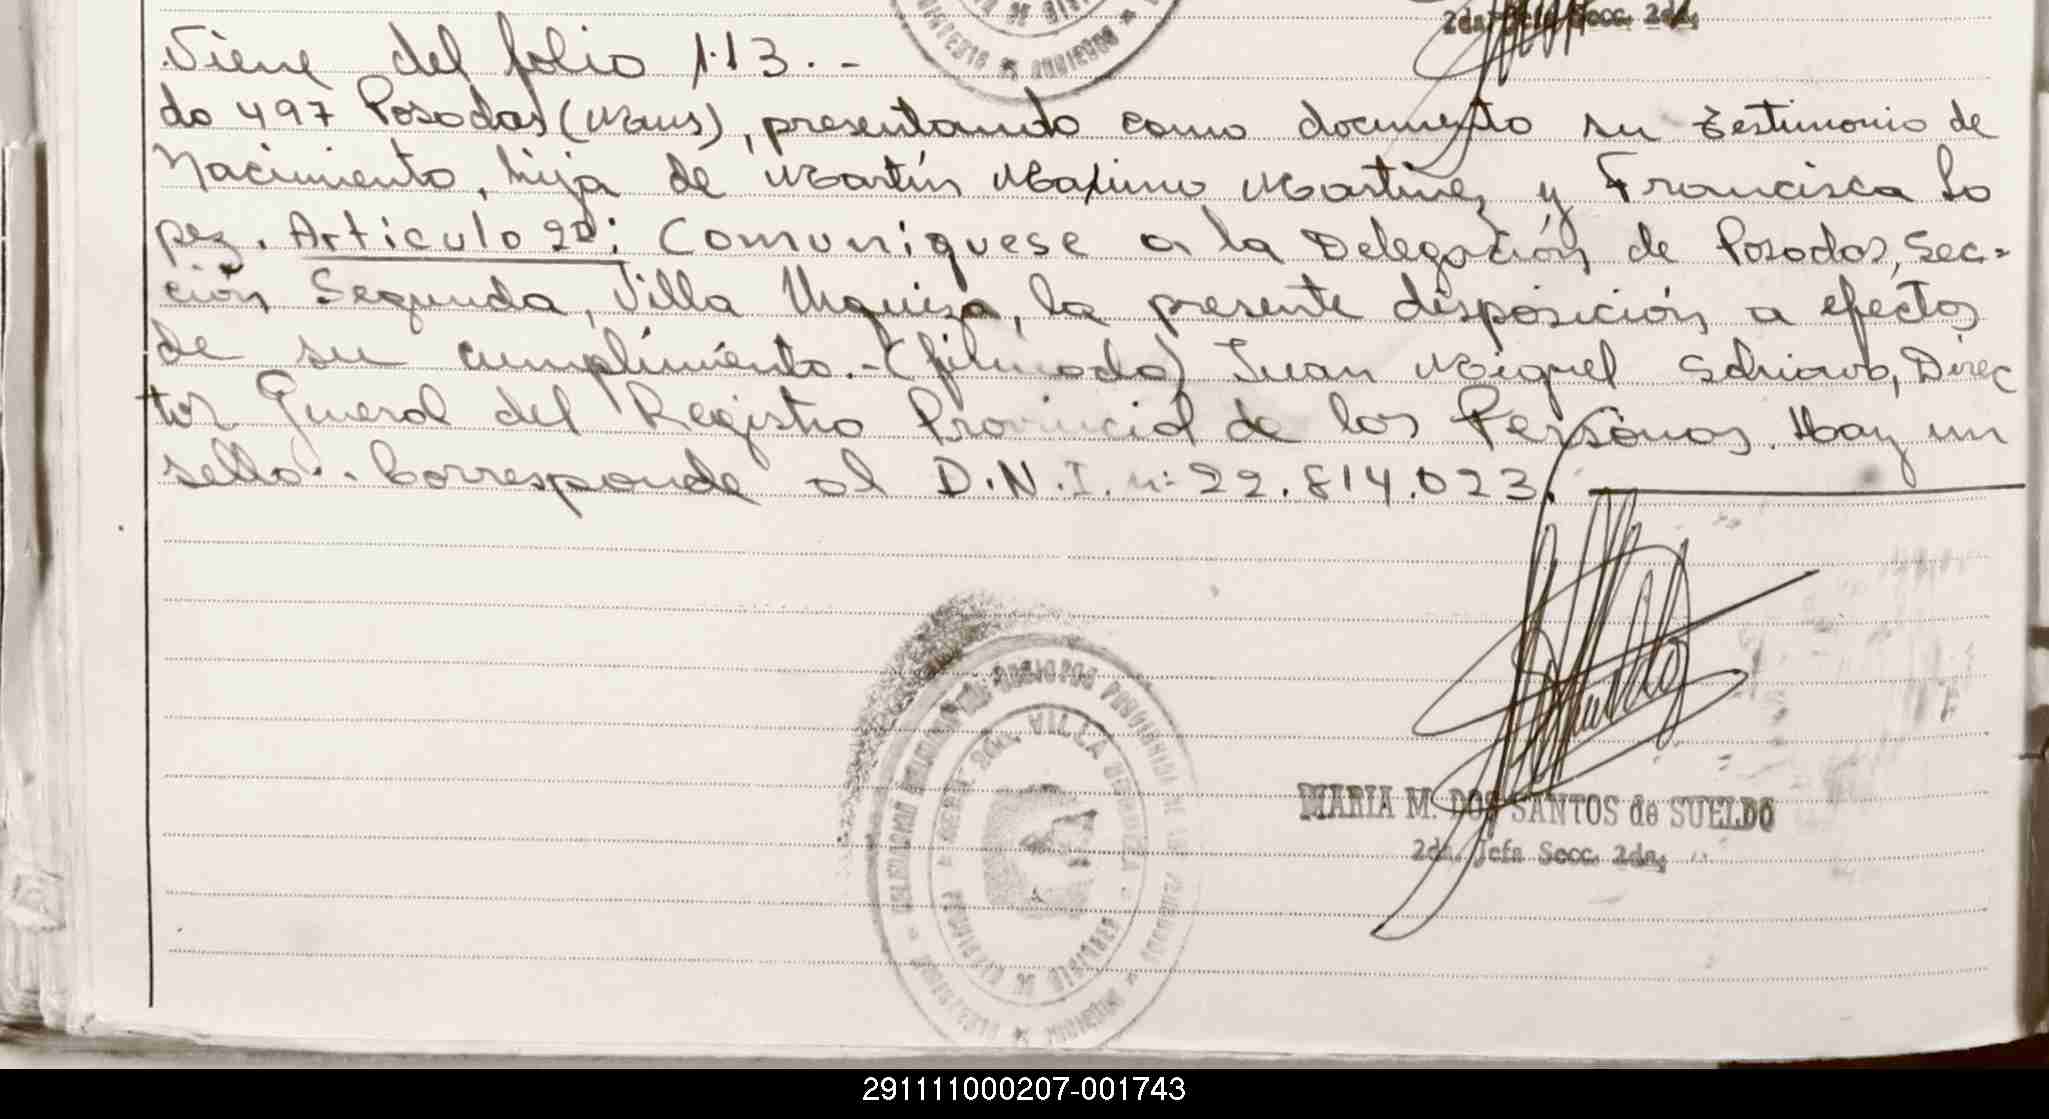 2da. Jefa Secc. 2da.
Viene del folio 113.-
do 497 Posadas (Mnes), presentando como documento su testimonio de
Nacimiento, hija de Martín Maximo Martinez y Francisca Lo
pez. Articulo 2º: Comuniquese a la Delegación de Posadas, Sec-
ción Segunda, Villa Urquiza, la presente disposición a efectos
de su cumplimiento.-(firmado) Juan Miguel Direc
tor General del Registro Provincial de las Personas. Hay un
sello.. Corresponde al D.N.I. n: 22.814.023.
REGISTRO PROVINCIAL DE LAS PERSONAS
VILLA URQUIZA
MARIA M. DOS SANTOS de SUELDO
2da. Jefa Secc. 2da.
291111000207-001743